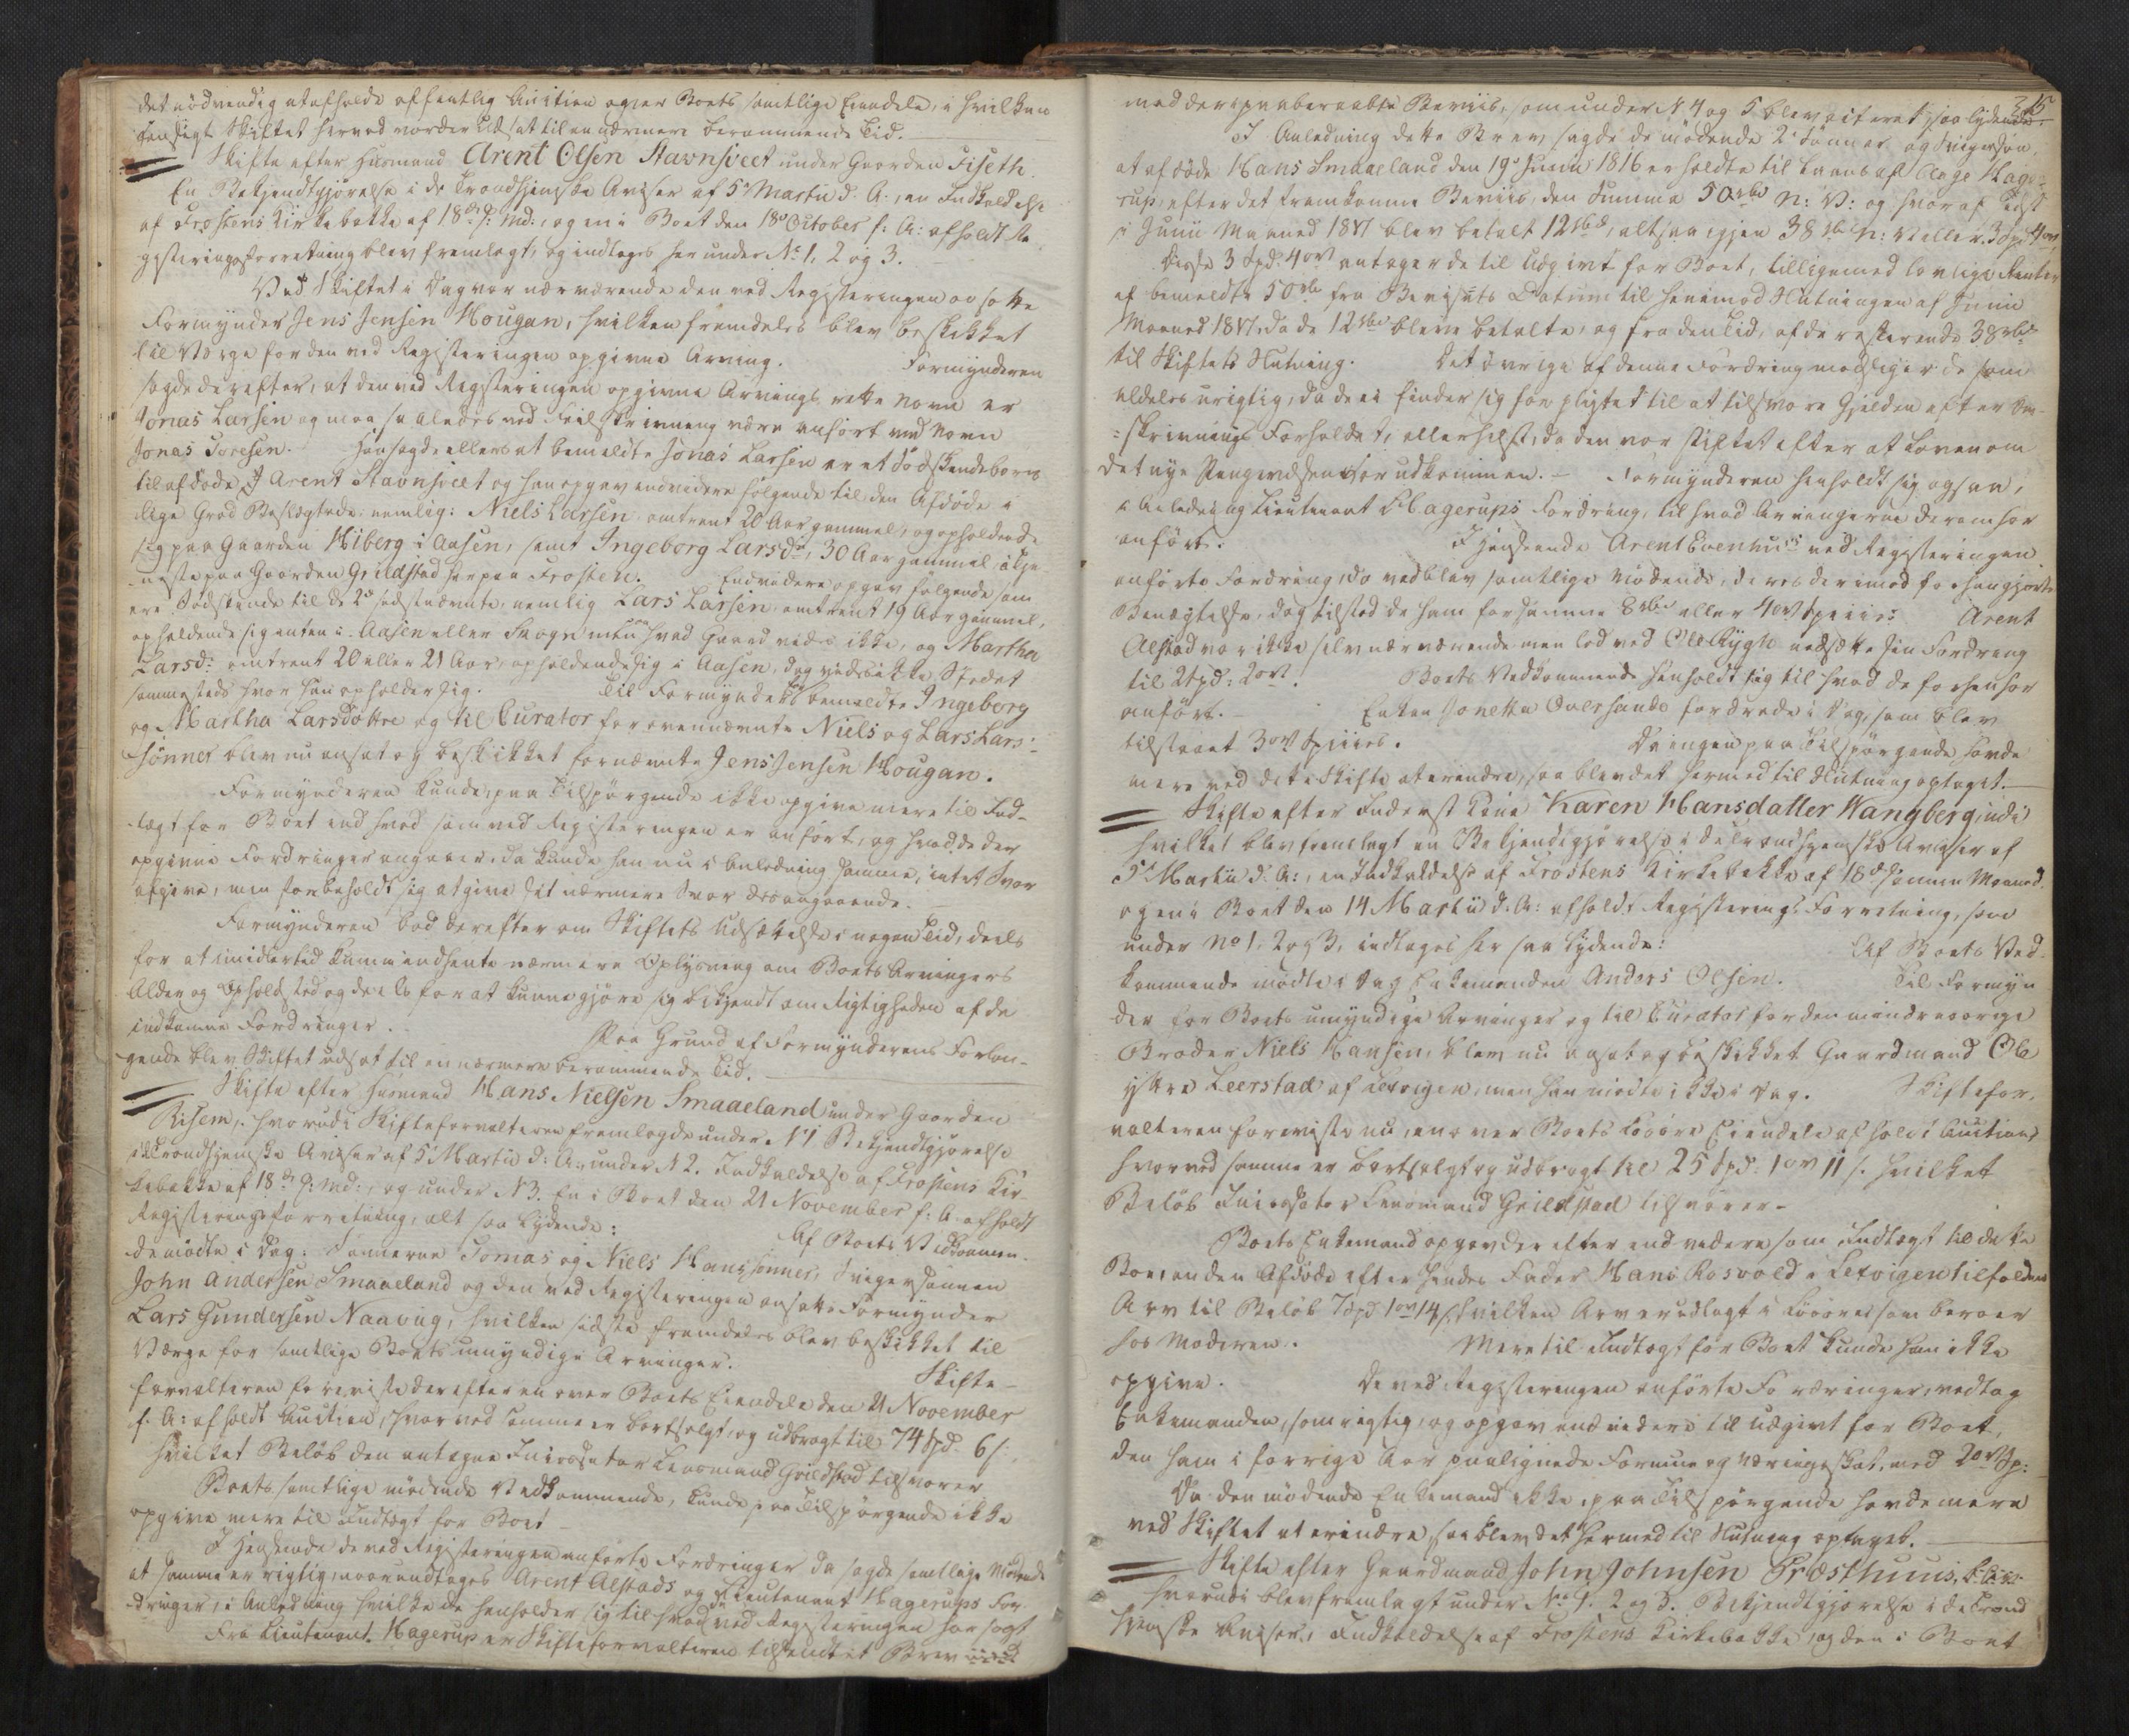 det nödvendig at afholde offentlig Auction over Boets samtlige Eiendele, i hvilken
Henseigt Skiftet herved vorder udsat til en nærmere berammende Tid.
Skifte efter Huusmand Arent Olsen Stavnsveet under Gaarden Fiseth.
En Bekjendtgjörelse i de Trondhjemske Aviser af 5 Martii d. A., en Indkaldelse
af Frostens Kirkebakke af 18de s: Md:, og en i Boet den 18de October f: A: afholdt Re-
gisteringsforretning blev fremlagt, og indtages her under No 1, 2 og 3.
Ved Skiftet i Dag var nærværende den ved Registeringen ansatte
Formynder Jens Jensen Hougan, hvilken fremdeles blev beskikket
til Værge for den ved Registeringen opgivne Arving. Formynderen
sagde derefter, at den ved Registeringen opgivne Arvings rette Navn er
Jonas Larsen og maa saaledes ved Feilskrivning være anfört ved Navn
Jonas Toresen. Han sagde ellers at bemeldte Jonas Larsen er et Södskendebarn
til afdöde Arent Stavnsveet og han opgav endvidere fölgende til den Afdöde i
lige Grad Beslægtede, nemlig: Niels Larsen omtrent 20 Aar gammel, og opholdende
sig paa Gaarden Hiberg i Aasen, samt Ingeborg Larsdr, 30 Aar gammel, i Tje-
neste paa Gaarden Grildstad her paa Frosten. Endvidere opgav fölgende som
ere Södskende til de 2de sidstnævnte, nemlig Lars Larsen omtrent 19 Aar gammel,
opholdende sig enten i Aasen eller Skogn men paa hvad Gaard vides ikke, og Martha
Larsd: omtrent 20 eller 21 Aar, opholdende sig i Aasen, dog vides ikke Stedet
sammesteds hvor hun opholder sig. Til Formynder for bemeldte Ingeborg
og Martha Larsdöttre og til Curator for ovennævnte Niels og Lars Lars-
sönner blev nu ansat og beskikket fornævnte Jens Jensen Hougan.
Formynderen kunde, paa Tilspörgende ikke opgive mere til Ind-
tægt for Boet end hvad som ved Registeringen er anfört, og hvad de der
opgivne Fordringer angaaer, da kunde han nu i Anledning samme, intet Svar
afgive, men forbeholdt sig at give sit nærmere Svar desangaaende.
Formynderen bad derefter om Skiftets Udsættelse i nogen Tid, deels
for at imidlertid kunne indhente nærmere Oplysning om Boets Arvingers
Alder og Opholdsted og deels for at kunne gjöre sig bekjendt om Rigtigheden af de
indkomne Fordringer. Paa Grund af Formynderens Forlan-
gende blev Skiftet udsat til en nærmere berammende Tid.
Skifte efter Husmand Hans Nielsen Smaaeland under Gaarden
Risem, hvorudi Skifteforvalteren fremlagde under N 1 Bekjendtgjörelse
i de Trondhjemske Aviser af 5 Martii d: A: under N 2. Indkaldelse af Frostens Kir-
kebakke af 18de s: Md:, og under N 3. En i Boet den 21 November f: A: afholdt
Registeringsforretning, alt saa lydende: Af Boets Vedkommen-
de mödte i Dag: Sönnerne Tomas og Niels Hanssönner, Svigersönnen
John Andersen Smaaeland og den ved Registeringen ansatte Formynder
Lars Gundersen Naavig, hvilken sidste fremdeles blev beskikket til
Værge for samtlige Boets umyndige Arvinger. Skifte-
forvalteren foreviste derefter en over Boets Eiendele den 21 November
f. A: afholdt Auction, hvorved samme er bortsolgt, og udbragt til 74 Spd. 6 s.,
hvilket Belöb den antagne Incassator Lensmand Grildstad tilsvarer.
Boets samtlige mödende Vedkommende, kunde paa Tilspörgende ikke
opgive mere til Indtægt for Boet.
I Henseende de ved Registeringen anförte Fordringer da sagde samtlige Mödende
at samme er rigtig, naar undtages Arent Alstads og Lieutenant Hagerups For-
dringer, i Anledning hvilke de henholder sig til hvad de ved Registeringen har sagt
Fra Lieutenant Hagerup er Skifteforvalteren tilsendt et Brev
315
med derpaaberaabte Beviis, som under N 4 og 5 blev aiteret, saa lydende.
I Anledning dette Brev, sagde de mödende 2de Sönner og Svigersön
at afdöde Hans Smaaeland den 19de Junii 1816 erholdte til Laans af Aage Hage-
rup, efter det fremkomne Beviis, den Summa 50 rbd N: V: og hvoraf
i Junii Maaned 1817 blev betalt 12 rbd, altsaa igjen 38 rbd N: V eller 3 Spd 4 ort
Disse 3 Spd. 4 ort antager de til Udgivt for Boet, tilligemed lovlige Renter
af bemeldte 50 rbd fra Bevisets Datum til henimod Slutningen af Junii
Maaned 1817, da de 12 rbd bleve betalte, og fra den Tid, af de resterende 38 rbd
til Skiftets Slutning. Det övrige af denne Fordring modsiger de som
aldeles urigtig, da de ei finder sig forpligtet til at tilsvare Gjelden efter Om-
skrivnings Forholdet, allerhelst, da den var stiftet efter at Loven om
det nye Pengevæsen var udkommen. Formynderen henholdt sig ogsaa,
i Anledning Lieutenant Hagerups Fordring, til hvad Arvingerne derom har
anfört. I Henseende Arent Evenhuus ved Registeringen
anförte Fordring, da vedblev samtlige Mödende, deres derimod forhen gjorte
Benægtelse, dog tilstod de ham for samme 8 rbd eller 4 ort Species Arent
Alstad var ikke selv nærværende men lod ved Ole Rygh nedsætte sin Fordring
til 2 Spd: 2 ort. Boets Vedkommende henholdt sig til hvad de forhen har
anfört. Enken Jonetta Oversande fordrede i Dag, som blev
tilstaaet 3 ort Species. Da ingen paa Tilspörgende havde
mere ved dette Skifte at erindre, saa blev det hermed til Slutning optaget.
Skifte efter Inderst Kone Karen Hansdatter Wangberg, udi
hvilket blev fremlagt en Bekjendtgjörelse i de Trondhjemske Aviser af
5te Martii d: A:, en Indkaldelse af Frostens Kirkebakke af 18de samme Maaned
og en i Boet den 14 Martii d. A: afholdt Registerings Forretning, som
under No 1, 2 og 3, indtages her saa lydende: Af Boets Ved-
kommende mödte i Dag Enkemanden Anders Olsen. Til Formyn-
der for Boets umyndige Arvinger og til Curator for den mindreaarige
Broder Niels Hansen, blev nu ansat og beskikket Gaardmand Ole
yttre Leerstad af Lexvigen, men han mödte ikke i Dag. Skiftefor-
valteren foreviste nu, en over Boets Lösöre Eiendele afholdt Auction,
hvorved samme er bortsolgt og udbragt til 25 Spd: 1 ort 11 s. hvilket
Belöb Incassator Lensmand Grildstad tilsvarer.
Boets Enkemand opgav derefter endvidere som Indtægt til dette
Boe, en den Afdöde efter hendes Fader Hans Rosvold i Lexvigen tilfalden
Arv til Belöb 7 Spd 1 ort 14 s, hvilken Arv er udlagt i Lösöre som beroer
hos Moderen. Mere til Indtægt for Boet kunde han ikke
opgive. De ved Registeringen anförte Fordringer, vedtog
Enkemanden, som rigtig, og opgav endvidere til Udgivt for Boet,
den ham i forrige Aar paalignede Formue og Næringsskat, med 2 ort Sp:
Da den mödende Enkemand ikke, paa Tilspörgende havde mere
ved Skiftet at erindre, saa blev det hermed til Slutning optaget.
Skifte efter Gaardmand John Johnsen Præsthuus,
hvorudi blev fremlagt under No 1. 2 og 3. Bekjendtgjörelse i de Trond-
hjemske Aviser, Indkaldelse af Frostens Kirkebakke, og den i Boet